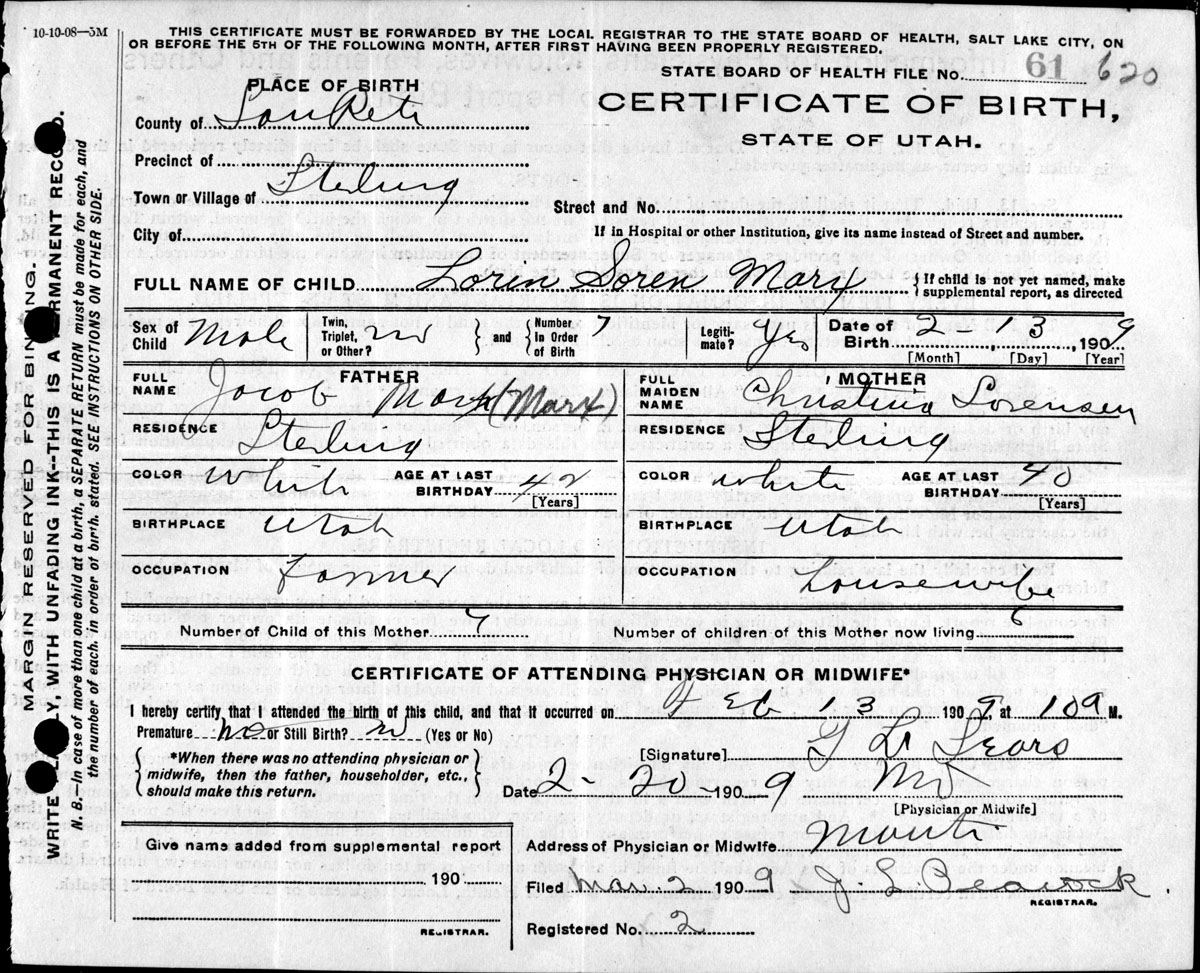 10-10-08—5M
THIS CERTIFICATE MUST BE FORWARDED BY THE LOCAL REGISTRAR TO THE STATE BOARD OF HEALTH, SALT LAKE CITY, ON
OR BEFORE THE 5TH OF THE FOLLOWING MONTH, AFTER FIRST HAVING BEEN PROPERLY REGISTERED.
STATE BOARD OF HEALTH FILE NO. 61 620
PLACE OF BIRTH
CERTIFICATE OF BIRTH,
STATE OF UTAH.
County of SanPete
Precinct of
Town or Village of Sterling
Street and No.
City of
If in Hospital or other Institution, give its name instead of Street and number.
FULL NAME OF CHILD Loren Soren Marx { If child is not yet named, make supplemental report, as directed
Sex of Child Male Twin, Triplet, or Other? no } and { Number In Order of Birth 7 Legiti- mate? Yes Date of Birth 2 13, 1909
[Month] [Day] [Year]
FATHER
FULL NAME Jacob Marx (Marx)
RESIDENCE Sterling
COLOR White AGE AT LAST BIRTHDAY 42 [Years]
BIRTHPLACE Utah
OCCUPATION Farmer
MOTHER
FULL MAIDEN NAME Christina Sorensen
RESIDENCE Sterling
COLOR White AGE AT LAST BIRTHDAY 40 [Years]
BIRTHPLACE Utah
OCCUPATION Housewife
Number of Child of this Mother 7 Number of children of this Mother now living 6
CERTIFICATE OF ATTENDING PHYSICIAN OR MIDWIFE*
I hereby certify that I attended the birth of this child, and that it occurred on Feb 13 1909, at 10 a M.
Premature no or Still Birth? no (Yes or No)
[Signature] G L Sears
{ *When there was no attending physician or
midwife, then the father, householder, etc.,
should make this return. }
Date 2-20-1909 MD
[Physician or Midwife]
Give name added from supplemental report
190
REGISTRAR.
Address of Physician or Midwife Manti
Filed Mar. 2 1909 J. L. Peacock.
REGISTRAR.
Registered No. 2
MARGN RESERVED FOR BINDING.
WRITE PLAINLY, WITH UNFADING INK--THIS IS A PERMANENT RECORD.
N. B.—In case of more than one child at a birth, a SEPARATE RETURN must be made for each, and
the number of each, in order of birth, stated. SEE INSTRUCTIONS ON OTHER SIDE.